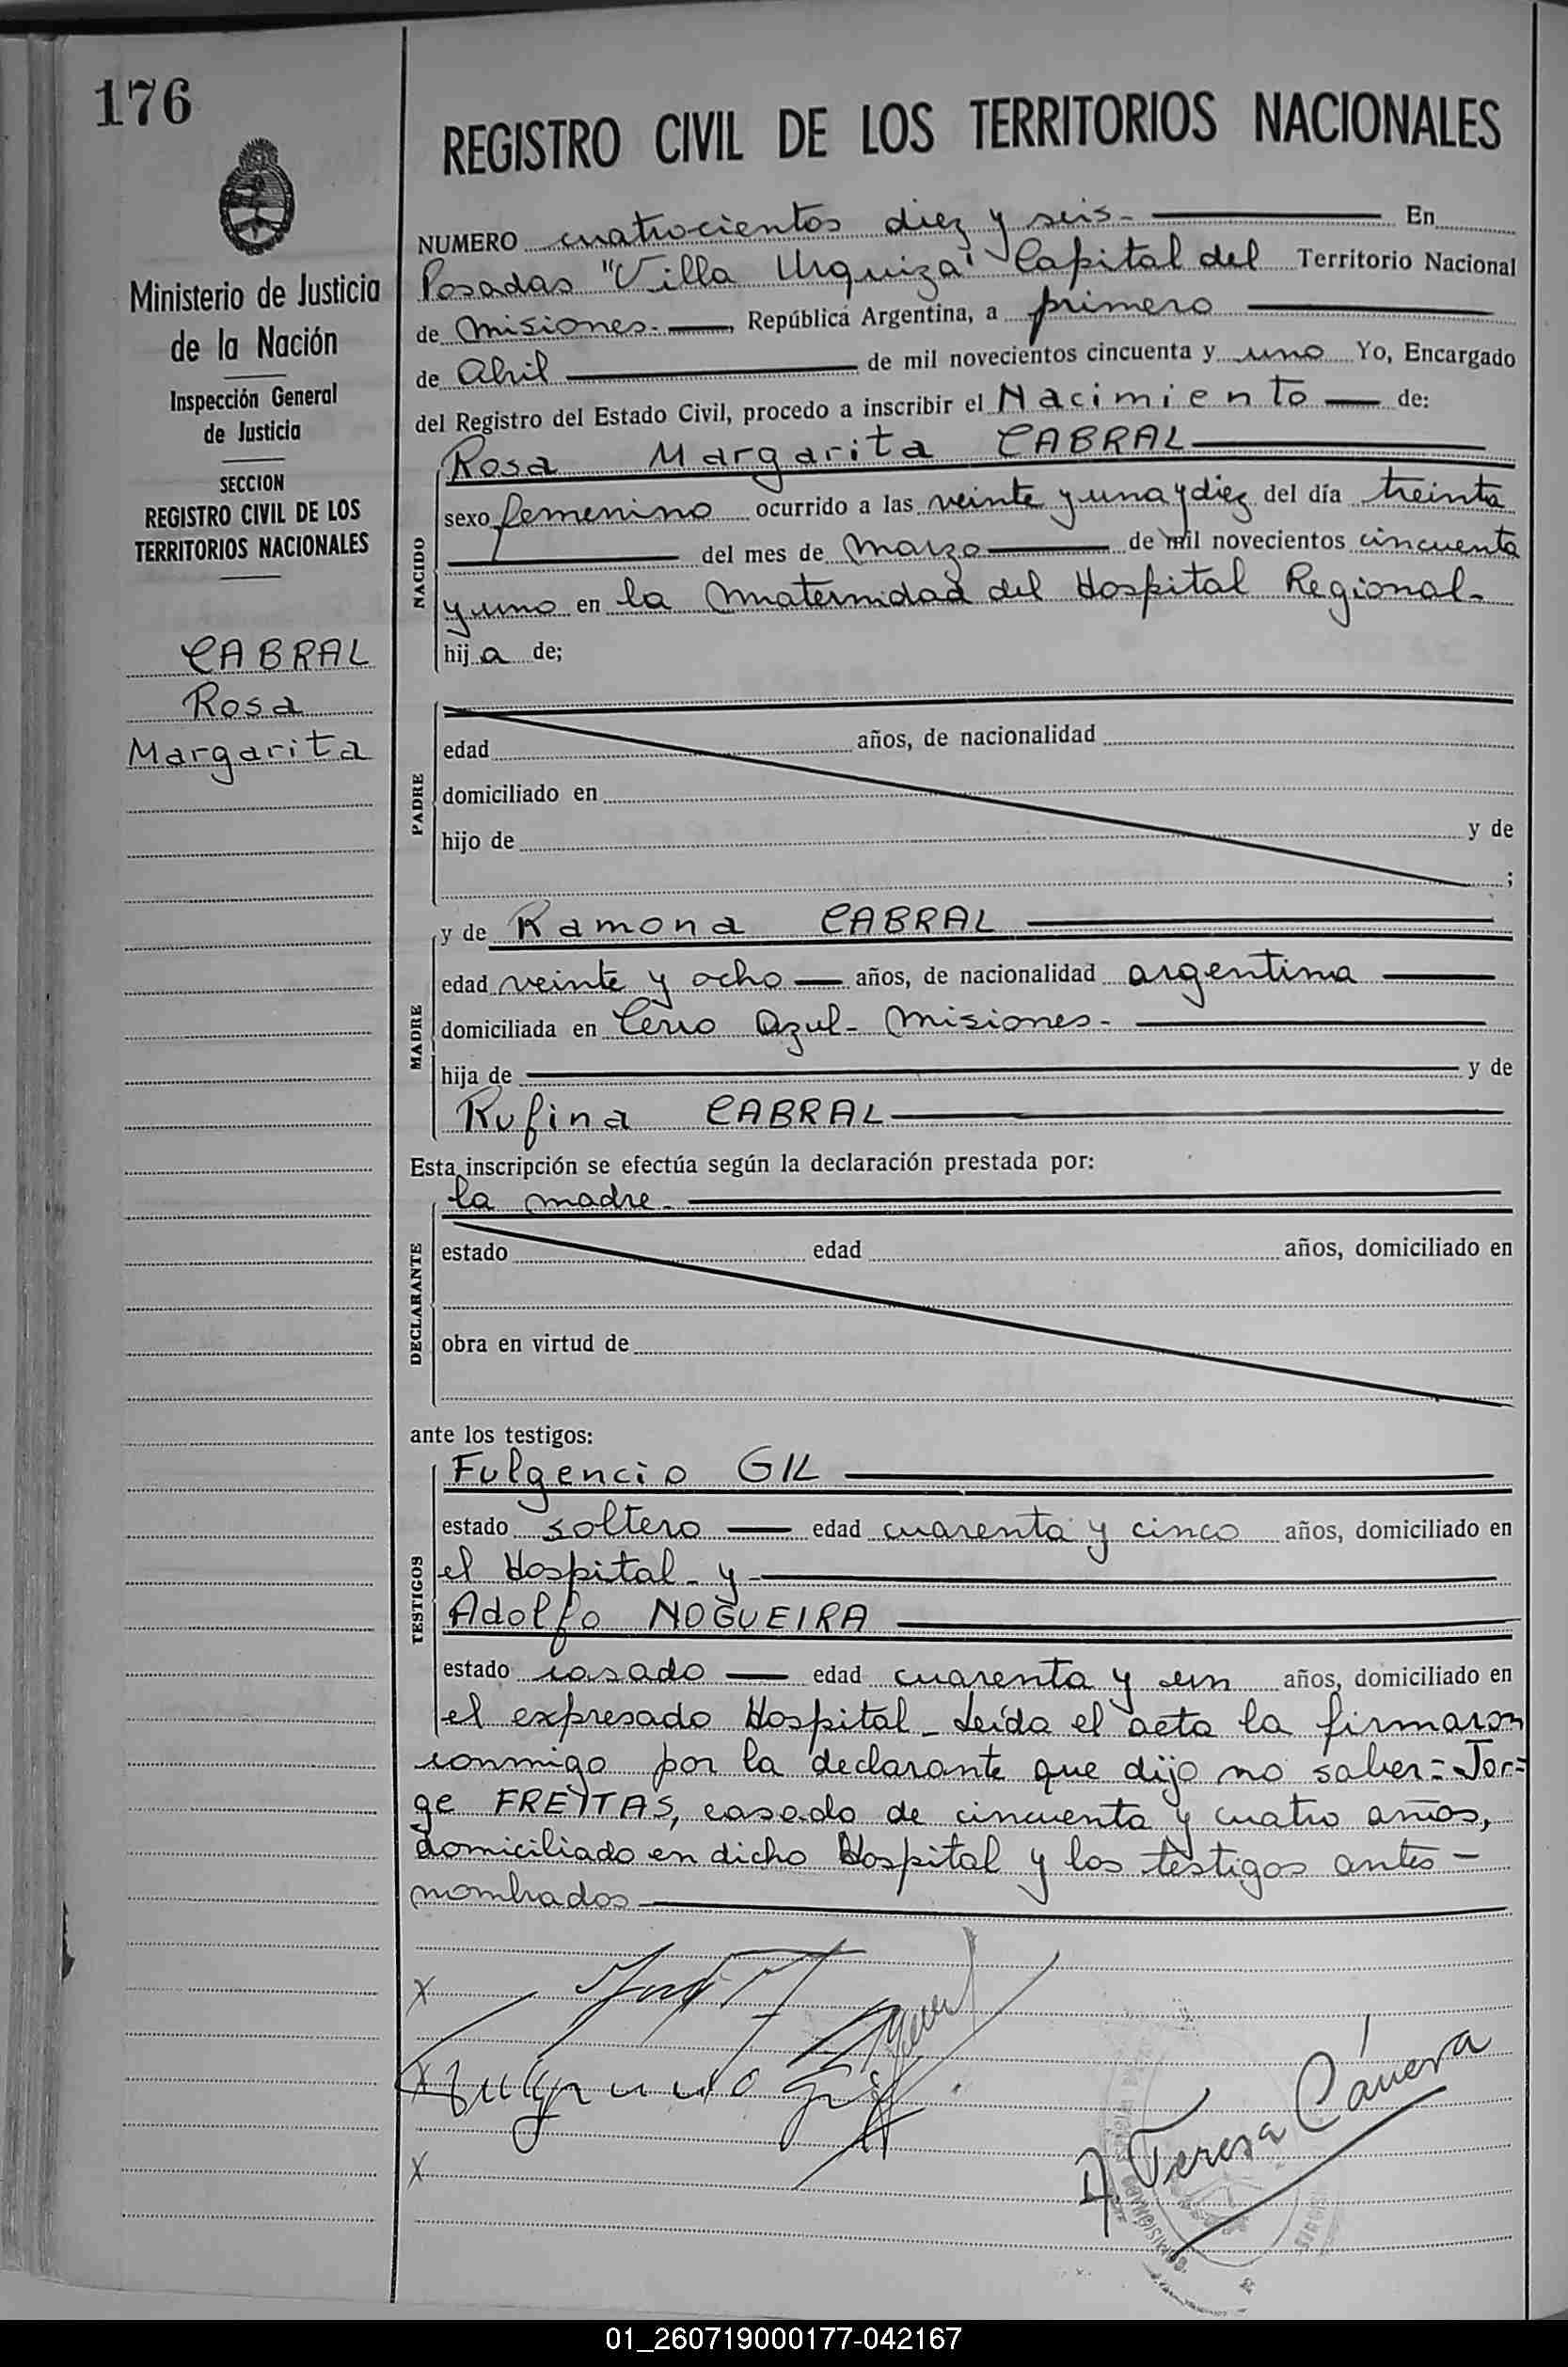 176
Ministerio de Justicia
de la Nación
Inspección General
de Justicia
SECCION
REGISTRO CIVIL DE LOS
TERRITORIOS NACIONALES
CABRAL
Rosa
Margarita
REGISTRO CIVIL DE LOS TERRITORIOS NACIONALES
NUMERO cuatrocientos diez y seis- En
Posadas "Villa Urquiza" Capital del Territorio Nacional
de Misiones.-, República Argentina, a primero
de Abril de mil novecientos cincuenta y uno Yo, Encargado
del Registro del Estado Civil, procedo a inscribir el Nacimiento de:
NACIDO
Rosa Margarita CABRAL
sexo femenino ocurrido a las veinte y una y diez del día treinta
del mes de Marzo de mil novecientos cincuenta
y uno en la Maternidad del Hospital Regional-
hija de;
PADRE
edad años, de nacionalidad
domiciliado en
hijo de y de
;
MADRE
y de Ramona CABRAL
edad veinte y ocho años, de nacionalidad argentina
domiciliada en Cerro Azul- Misiones-
hija de y de
Rufina CABRAL
Esta inscripción se efectúa según la declaración prestada por:
DECLARANTE
la madre-
estado edad años, domiciliado en
obra en virtud de
ante los testigos:
TESTIGOS
Fulgencio GIL
estado soltero edad cuarenta y cinco años, domiciliado en
el Hospital- y
Adolfo NOGUEIRA
estado casado edad cuarenta y un años, domiciliado en
el expresado Hospital- Leída el acta la firmaron
conmigo por la declarante que dijo no saber= Jor=
ge FREITAS, casado de cincuenta y cuatro años,
domiciliado en dicho Hospital y los testigos antes-
nombrados
X
X Fulgencio Gil
X
A. Teresa Cánera
01_260719000177-042167